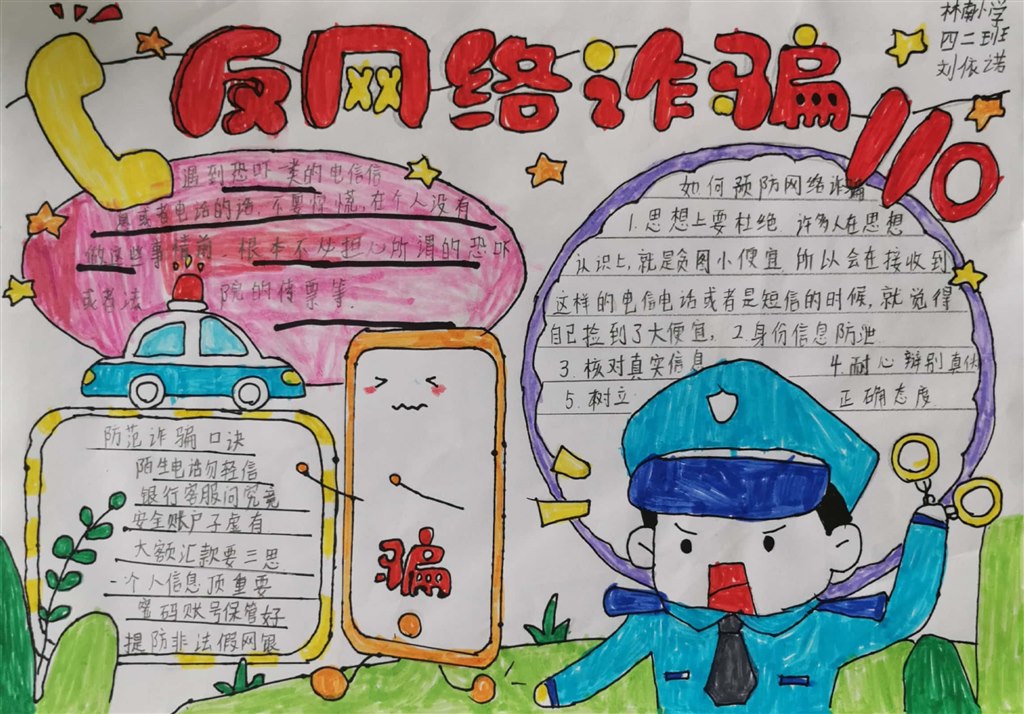 林南小学
四二班
刘依诺
反网络诈骗
110
遇到恐吓类的电信信
息或者电话的话,不要惊慌,在个人没有
做这些事情前,根本不必担心所谓的恐吓
或者法院的传票等.
如何预防网络诈骗
1.思想上要杜绝 许多人在思想
认识上,就是贪图小便宜 所以会在接收到
这样的电信电话或者是短信的时候,就觉得
自己捡到了大便宜, 2.身份信息防泄
3.核对真实信息 4.耐心辨别真伪
5.树立 正确态度
防范诈骗口诀
陌生电话勿轻信
银行客服问究竟
安全账户子虚有
大额汇款要三思
个人信息顶重要
密码账号保管好
提防非法假网银
骗